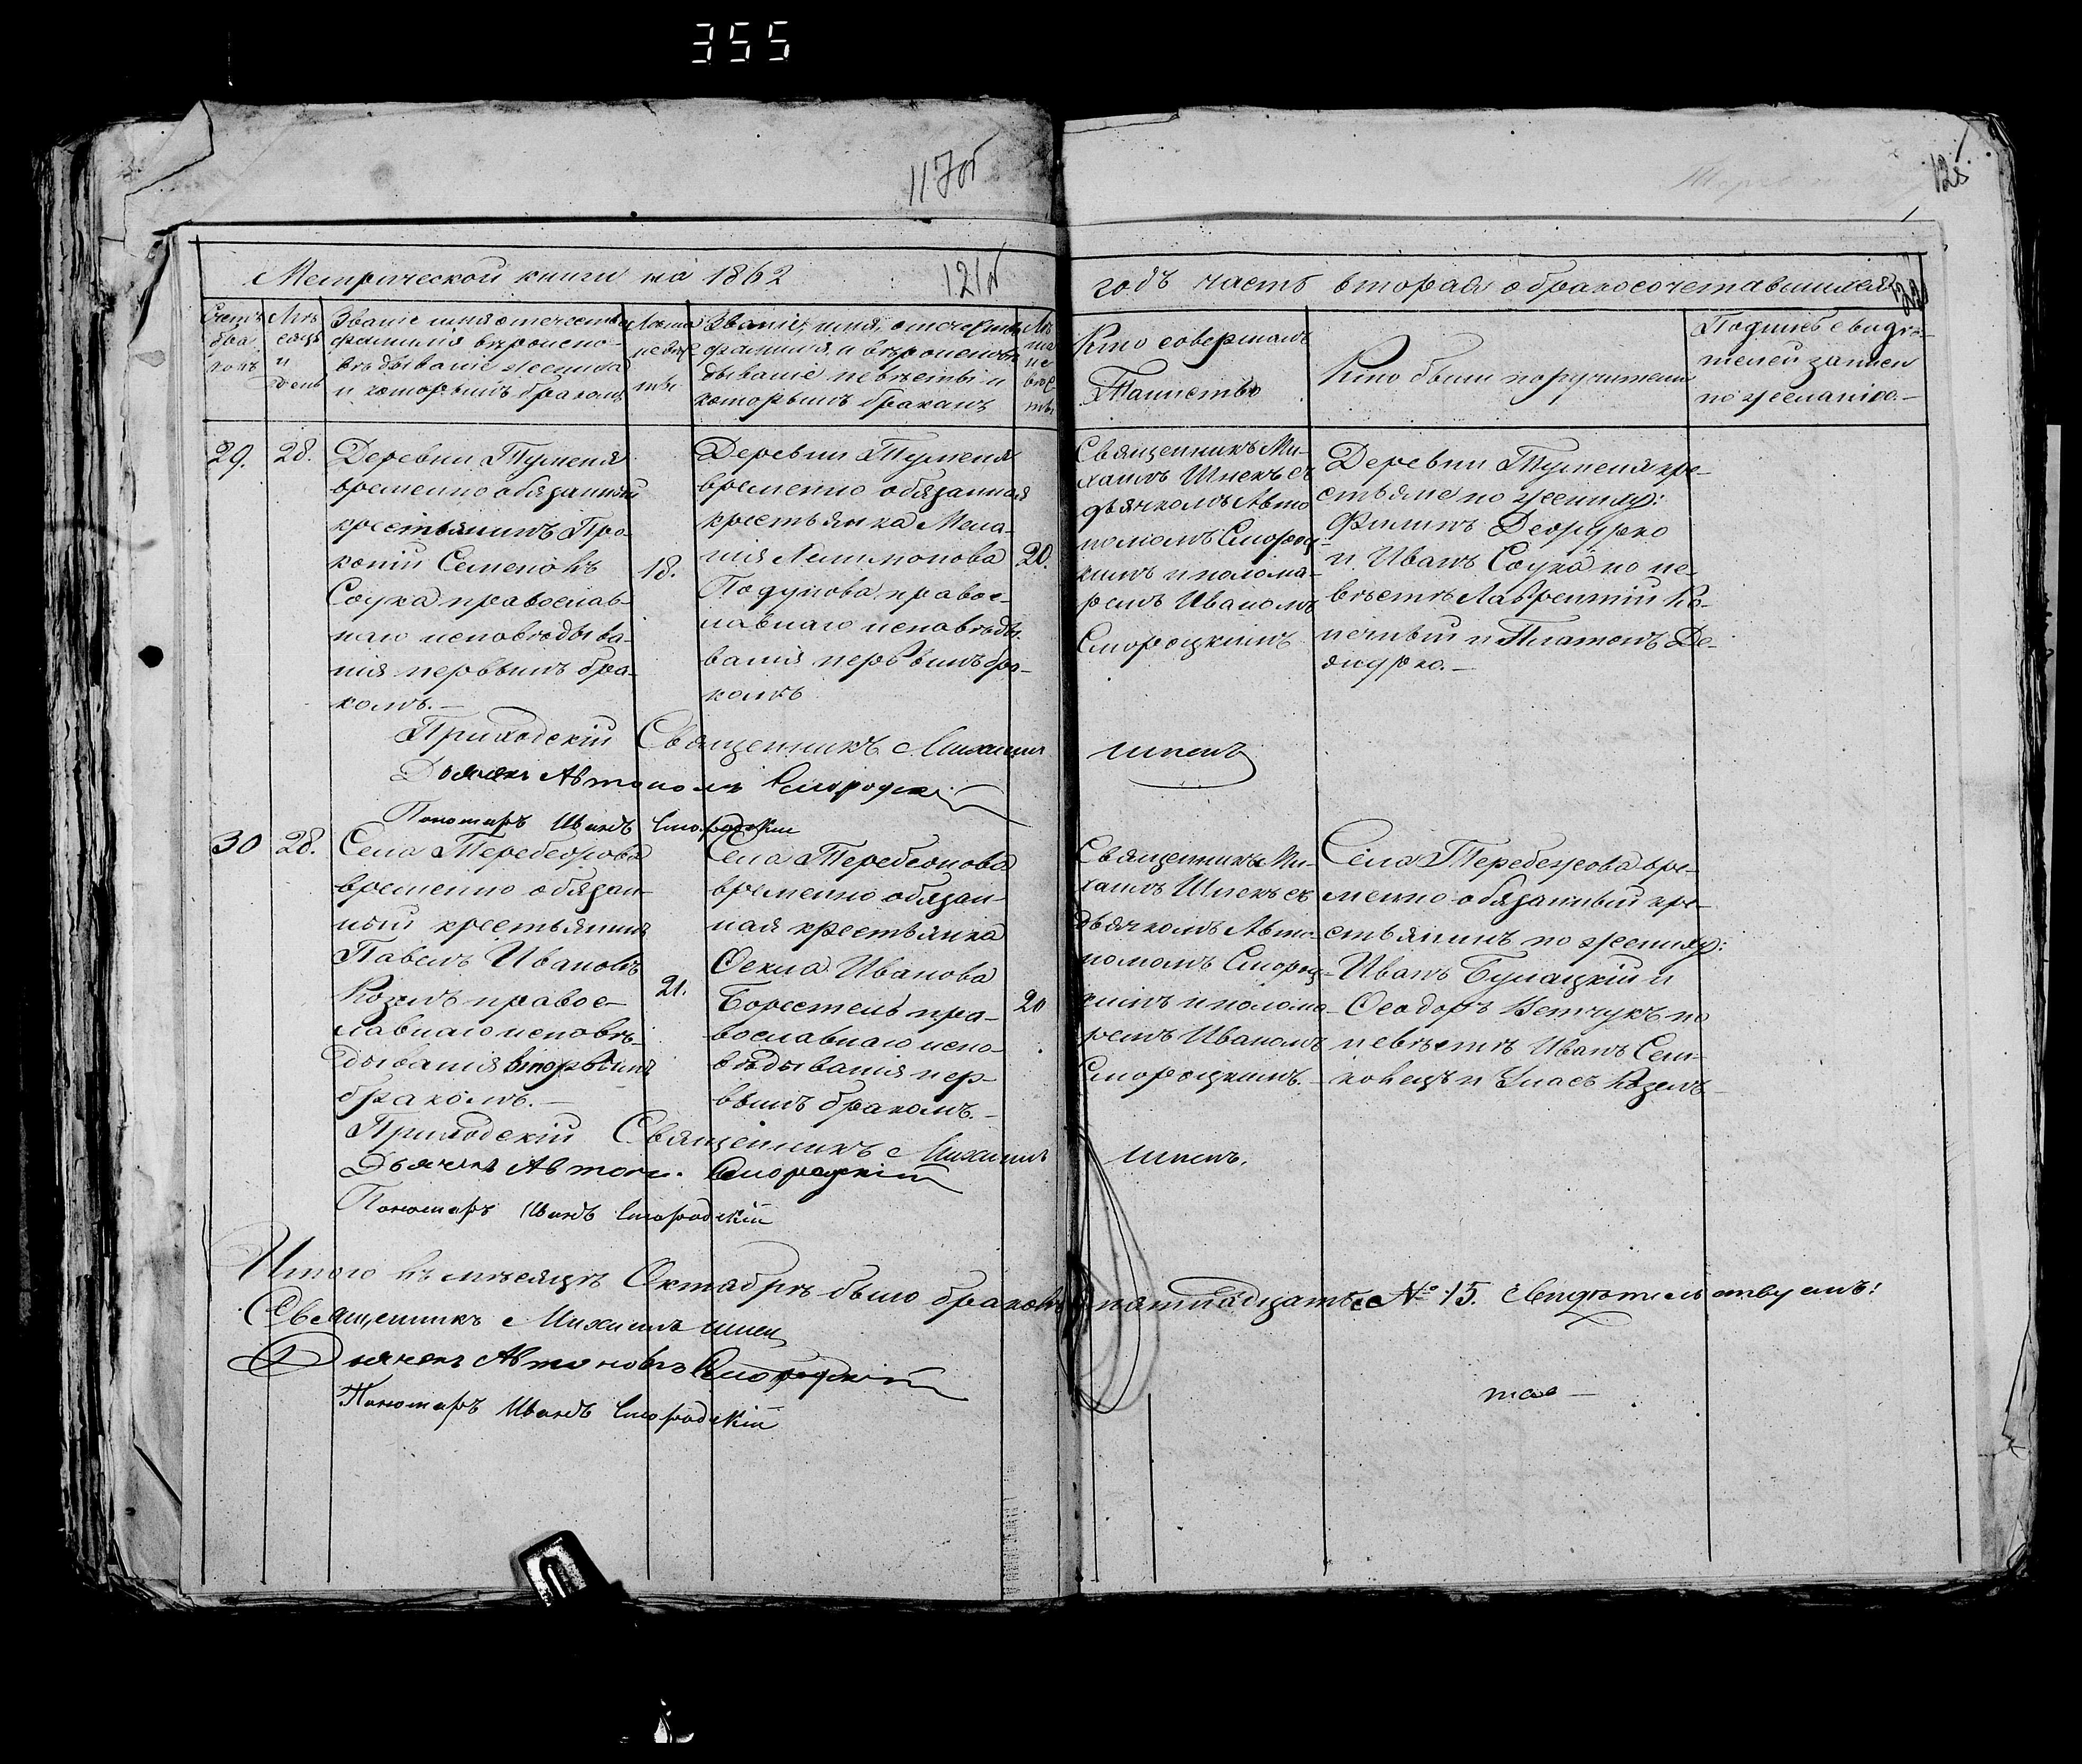 355
117об
128
Метрической книги на 1862
121об
годъ часть вторая о бракосочетавшихся
122
Счетъ браковъ
Мѣсяцъ и день
Званіе имя отечество
фамилія вѣроиспо-
вѣдываніе жениха
и которымъ бракомъ
Лѣта
жениха
Званіе, имя, отечество
фамилія, и вѣроисповѣ-
дываніе невѣсты и
которымъ бракомъ
Лѣта
не
вѣс
ты
Кто совершалъ
Таинство
Кто были поручители
Подпись свидѣ-
телей записи
по желанію.-
29.
28.
Деревни Туменя
временно обязанный
крестьянинъ Про-
копій Семеновъ
Соука православ-
наго исповѣдыва-
нія первымъ бра-
комъ.-
18.
Деревни Туменя
временно обязанная
крестьянка Мела-
нія
православнаго исповѣды-
ванія первымъ бра-
комъ
20.
Священникъ Ми-
хаилъ Шпекъ съ
дьячкомъ Авто
номомъ Смород-
скимъ и понома-
ремъ Иваномъ
Смородскимъ
Деревни Туменя кре-
стьяне по женихѣ:
Филипъ
и Иванъ Соука по не-
вѣстѣ Лаврентій
и Платонъ
Приходскій Священникъ Михаилъ Шпекъ
Дьячекъ Автономъ Смородскій
Пономарь Иванъ Смородскій
30
28.
Села Теребежова
временно обязан-
ный крестьянинъ
Павелъ Ивановъ
Козелъ правос-
лавнаго исповѣ-
дыванія вторымъ
бракомъ.-
21.
Села Теребежова
временно обязан-
ная крестьянка
Фекла Иванова
Борестень пра-
вославнаго испо-
вѣдыванія пер-
вымъ бракомъ.-
20
Священникъ Ми-
хаилъ Шпекъ съ
дьячкомъ Авто-
номомъ Смород-
скимъ и понома-
ремъ Иваномъ
Смородскимъ.-
Села Теребежова вре-
менно-обязанный кре-
стьянинъ по женихѣ:
Иванъ Булацкій и
Феодоръ Ветчукъ по
невѣстѣ Иванъ Сен-
ковецъ и Власъ Козелъ
Приходскій Священникъ Михаилъ Шпекъ.
Дьячекъ Автоно. Смородскій
Пономарь Иванъ Смородскій
Итого въ мѣсяцѣ Октябрѣ было браковъ пятнадцать № 15. Свидѣтельствуемъ:
Священникъ Михаилъ Шпекъ
Дьячекъ Автономъ Смородскій
Пономарь Иванъ Смородскій